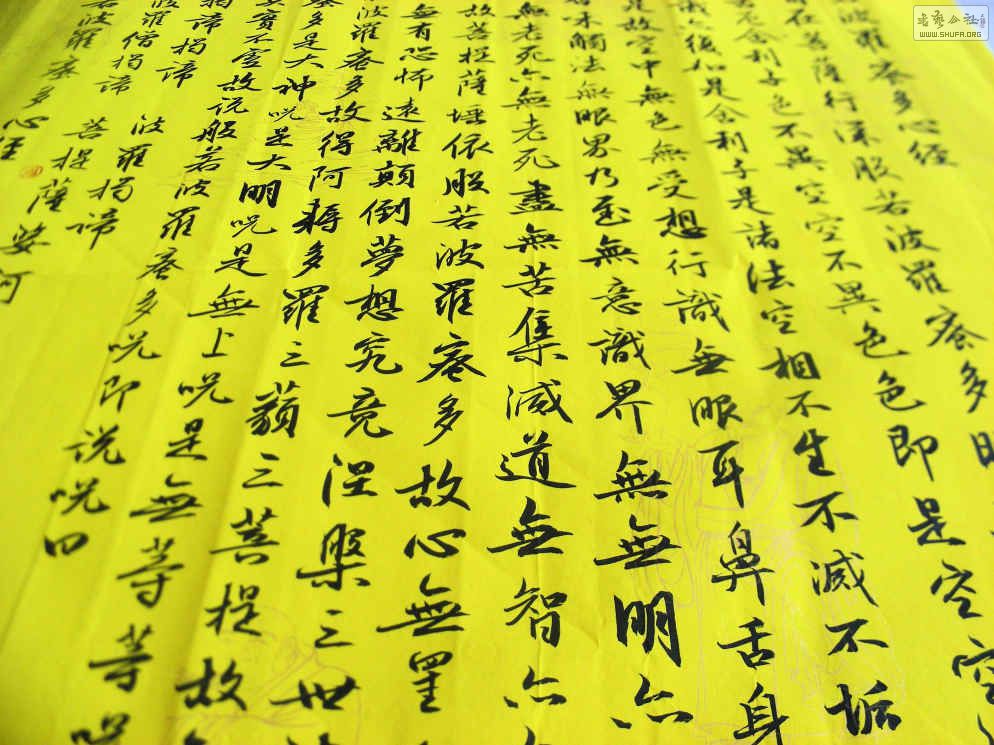 波羅蜜多心經
在菩薩行深般若波羅蜜多時
舍利子色不異空空不異色色即是空空
復如是舍利子是諸法空相不生不滅不垢
是故空中無色無受想行識無眼耳鼻舌身
味觸法無眼界乃至無意識界無無明亦
無老死亦無老死盡無苦集滅道無智亦
故菩提薩埵依般若波羅蜜多故心無罣
無有恐怖遠離顛倒夢想究竟涅槃三世
波羅蜜多故得阿耨多羅三藐三菩提故
多是大神咒是大明咒是無上咒是無等等咒
實不虛故说般若波羅蜜多咒即说咒曰
揭諦揭諦 波羅揭諦
波羅僧揭諦 菩提薩婆訶
若波羅蜜多心經
WWW.SHUFA.ORG